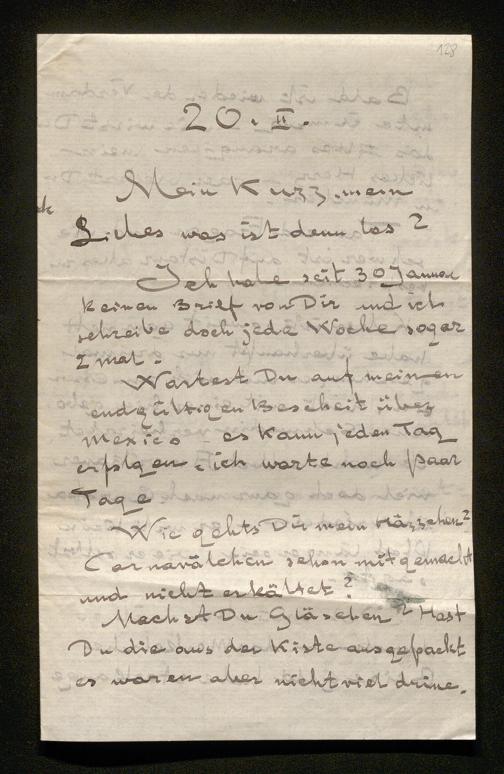 128
20. II.
Mein Kuzz. mein
Liebes was ist denn los ?
Ich habe seit 30 Januar
keinen Brief von Dir und ich
schreibe doch jede Woche sogar
2 mal.
Wartest Du auf meinen
endgültigen Bescheit über
Mexico es kann jeden Tag
erfolgen. ich warte noch paar
Tage
Wie gehts Dir mein Häzzchen?
Carnavälchen schon mitgemacht
und nicht erkältet ?
Machst Du Gläschen ? Hast
Du die aus der Kiste ausgepackt
es waren aber nicht viel drine.